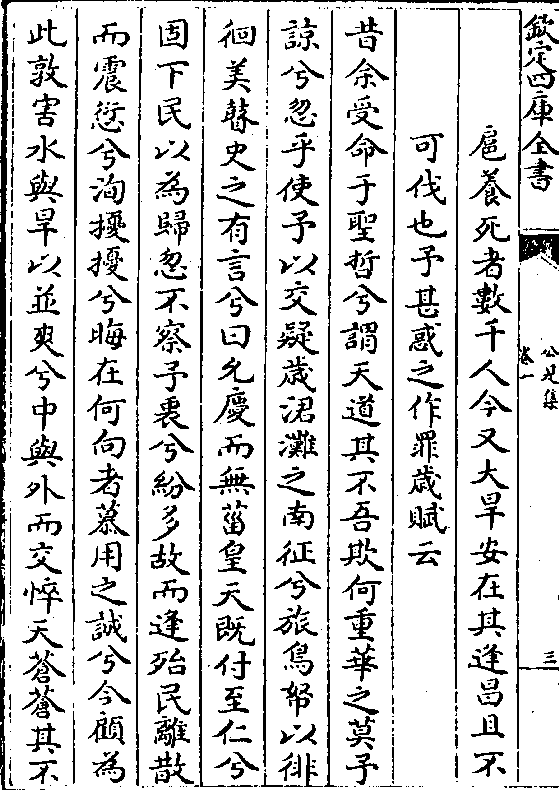 欽定四庫全書
公是集
卷一
三
扈養死者數千人今又大旱安在其逢昌且不
可伐也予甚惑之作罪歲賦云
昔余受命于聖哲兮謂天道其不吾欺何重華之莫予
諒兮忽乎使予以交疑歳涒灘之南征兮旅鳥帑以徘
徊美瞽史之有言兮曰允慶而無菑皇天既付至仁兮
固下民以為歸忽不察予衷兮紛多故而逢殆民離散
而震愆兮洶擾擾兮晦在何向者慕用之誠兮今顧為
此敦害水與旱以並爽兮中與外而交悴天蒼蒼其不